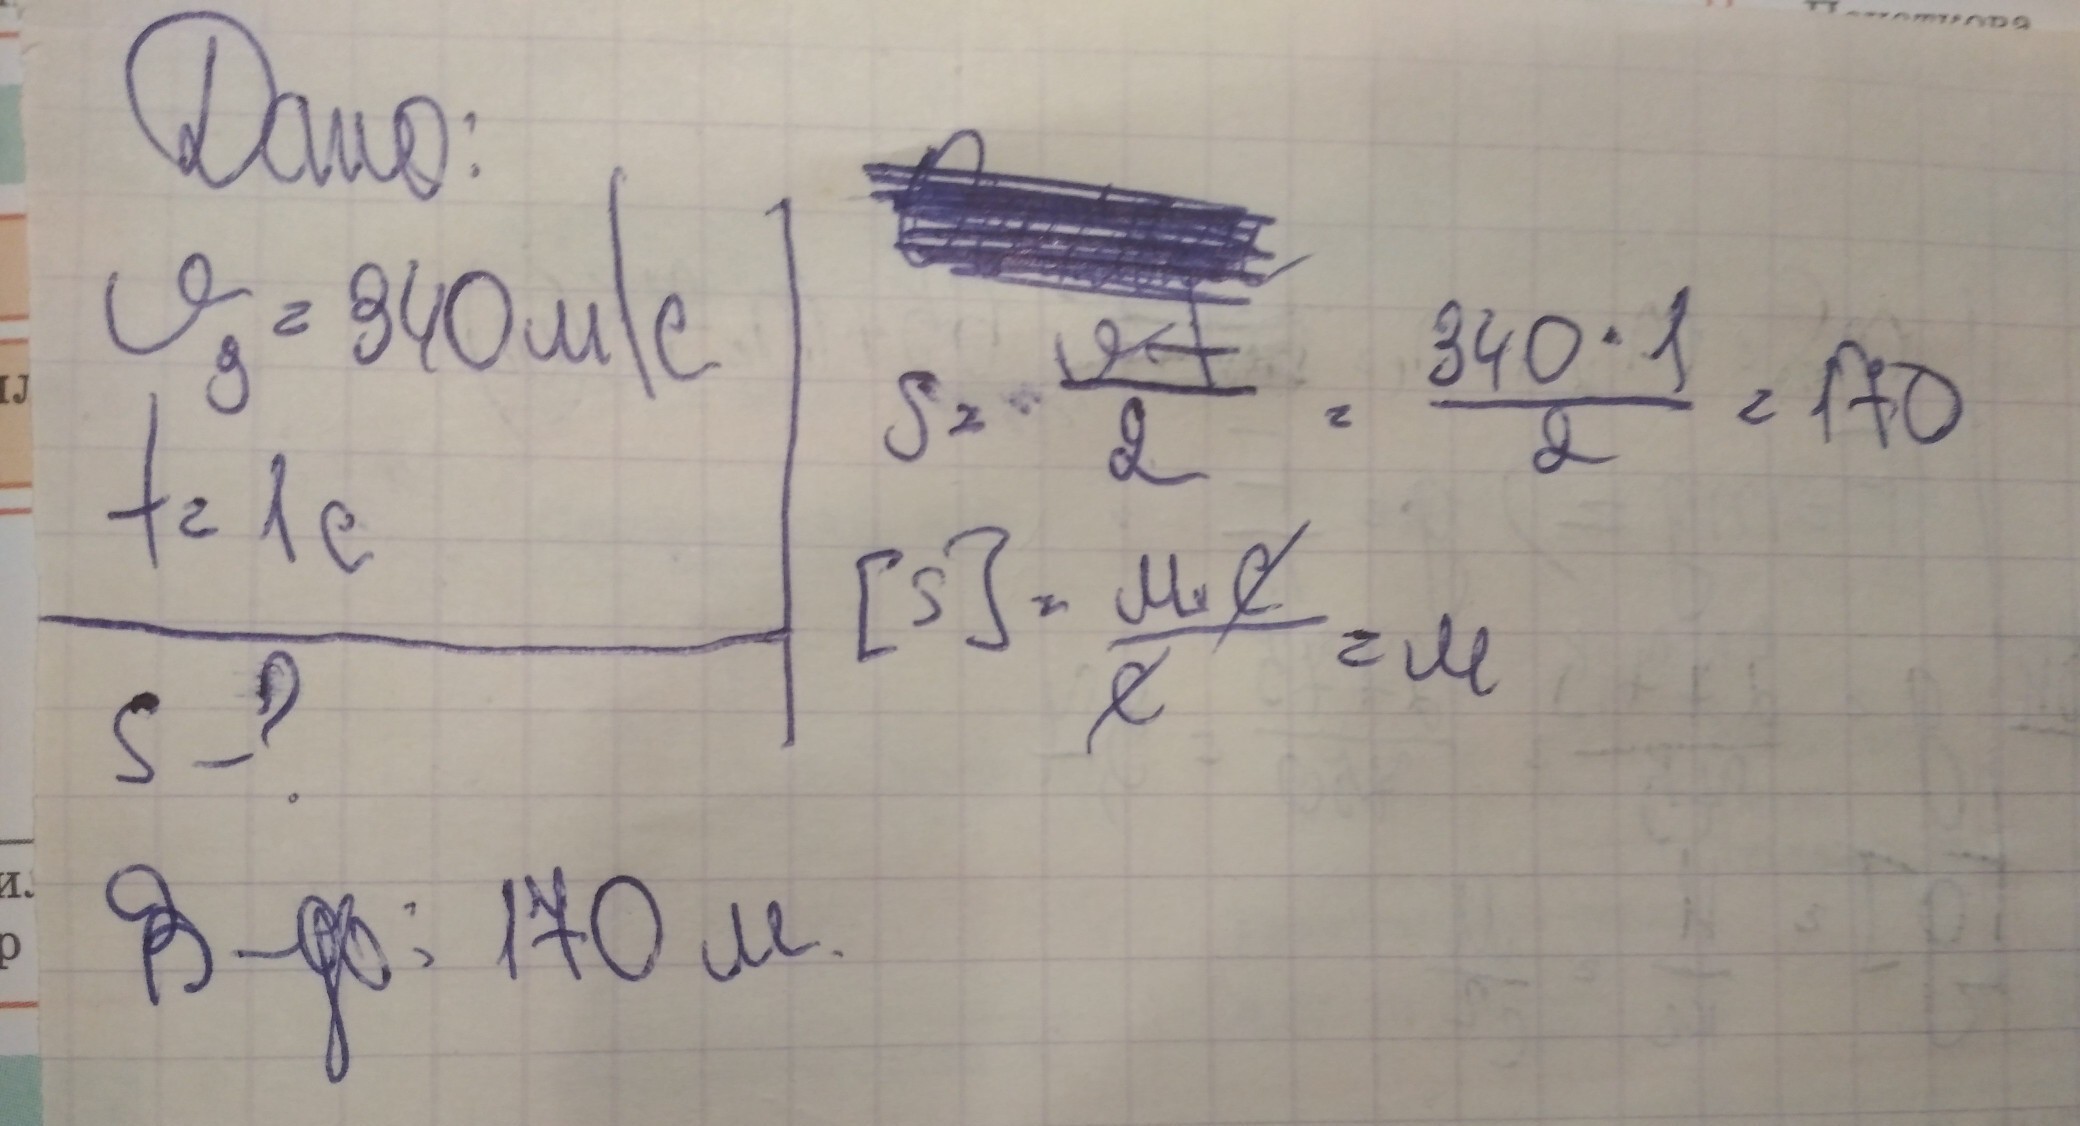 Дано:
υз = 340 м/с
t = 1 с
S - ?
S = υt/2 = 340·1/2 = 170
[S] = м·с/с = м
В-дь: 170 м.